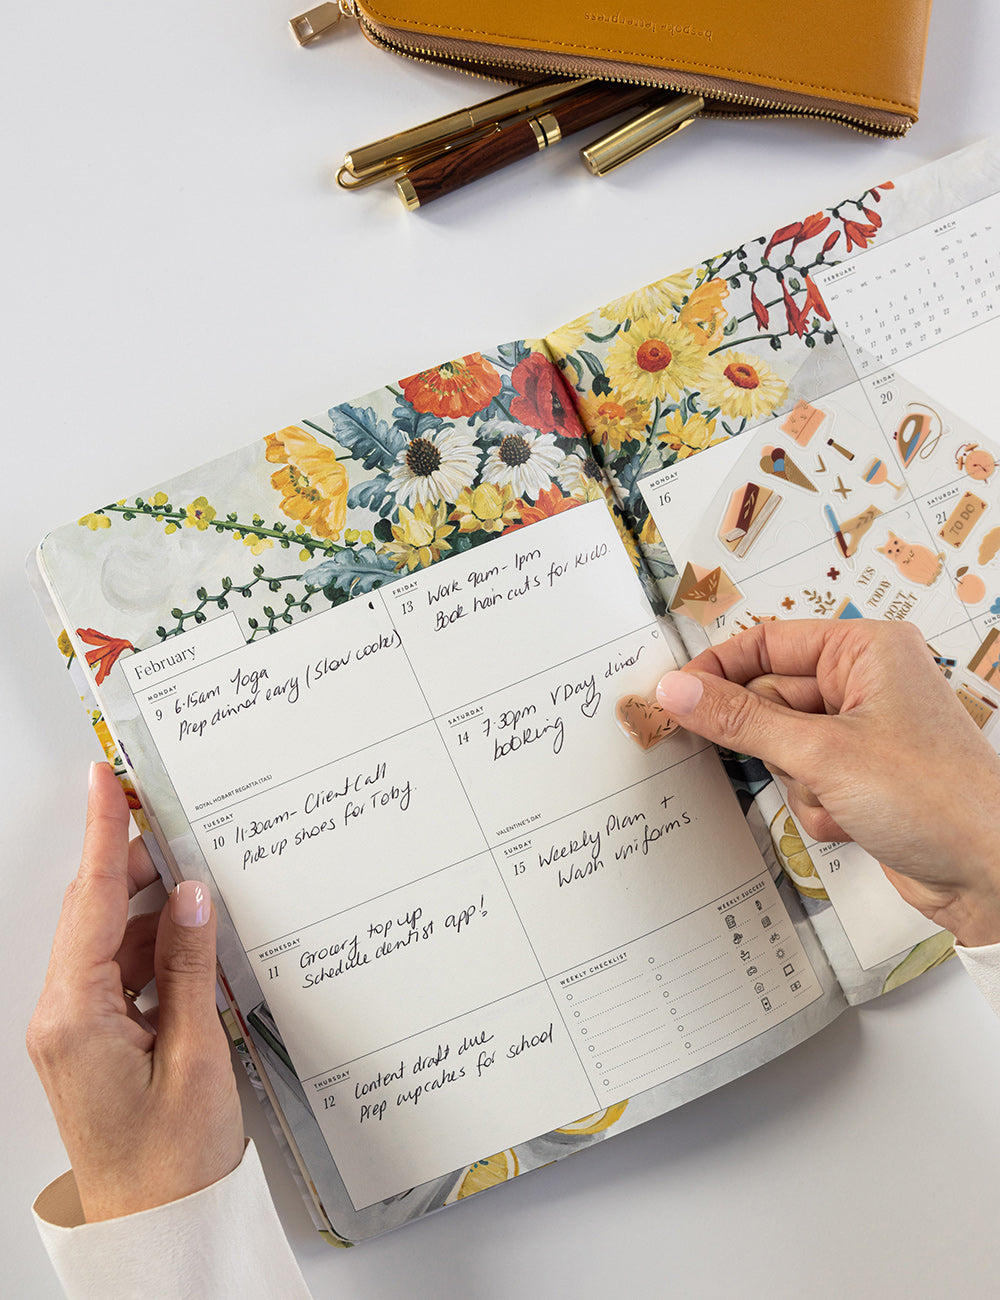 bespoke letterpress
February
MONDAY
9
6.15am Yoga
Prep dinner early (Slow cooker)
ROYAL HOBART REGATTA (TAS)
TUESDAY
10
11.30am - Client Call
Pick up shoes for Toby.
WEDNESDAY
11
Grocery top up
Schedule dentist app!
THURSDAY
12
Content draft due
Prep cupcakes for school
FRIDAY
13
Work 9am - 1pm
Book hair cuts for kids.
SATURDAY
14
7.30pm V Day dinner
booking ♡
VALENTINE'S DAY
SUNDAY
15
Weekly Plan +
Wash uniforms.
WEEKLY CHECKLIST
WEEKLY SUCCESS
MONDAY
16
17
THURS
19
FEBRUARY
MARCH
FRIDAY
20
SATURDAY
21
TO DO
YES
TODAY
DON'T
FORGET